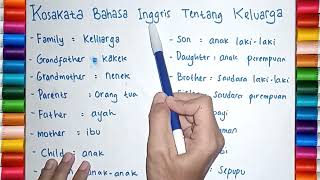 Kosakata Bahasa Inggris Tentang Keluarga
- Family : Kelliarga
- Grandfather : kakek
- Grandmother : nenek
- Parents : orang tua
- Father : ayah
- mother : ibu
- Child : anak
anak-anak
- Son : anak laki-laki
- Daughter : anak pirempuan
- Brother : Saudara laki-laki
: Saudara pirempuan
Sepupu